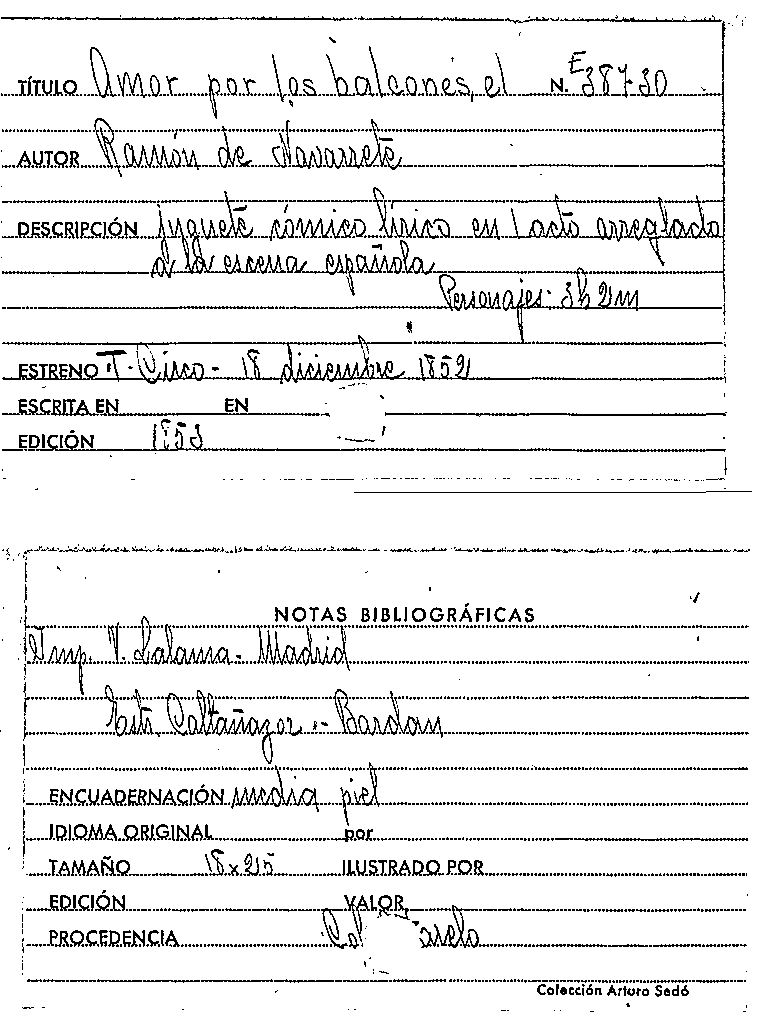 TÍTULO Amor por los balcones, el N. E 38730
AUTOR Ramón de Navarrete
DESCRIPCIÓN juguete cómico lírico en 1 acto arreglado
a la escena española
Personajes: 3h 2m
ESTRENO T. Circo - 18 diciembre 1852
ESCRITA EN EN
EDICIÓN 1853
NOTAS BIBLIOGRÁFICAS
Imp. V. Lalama - Madrid
Estr. Caltañazor - Bardan
ENCUADERNACIÓN media piel
IDIOMA ORIGINAL por
TAMAÑO 18 x 215 ILUSTRADO POR
EDICIÓN VALOR
PROCEDENCIA Col
Colección Arturo Sedó